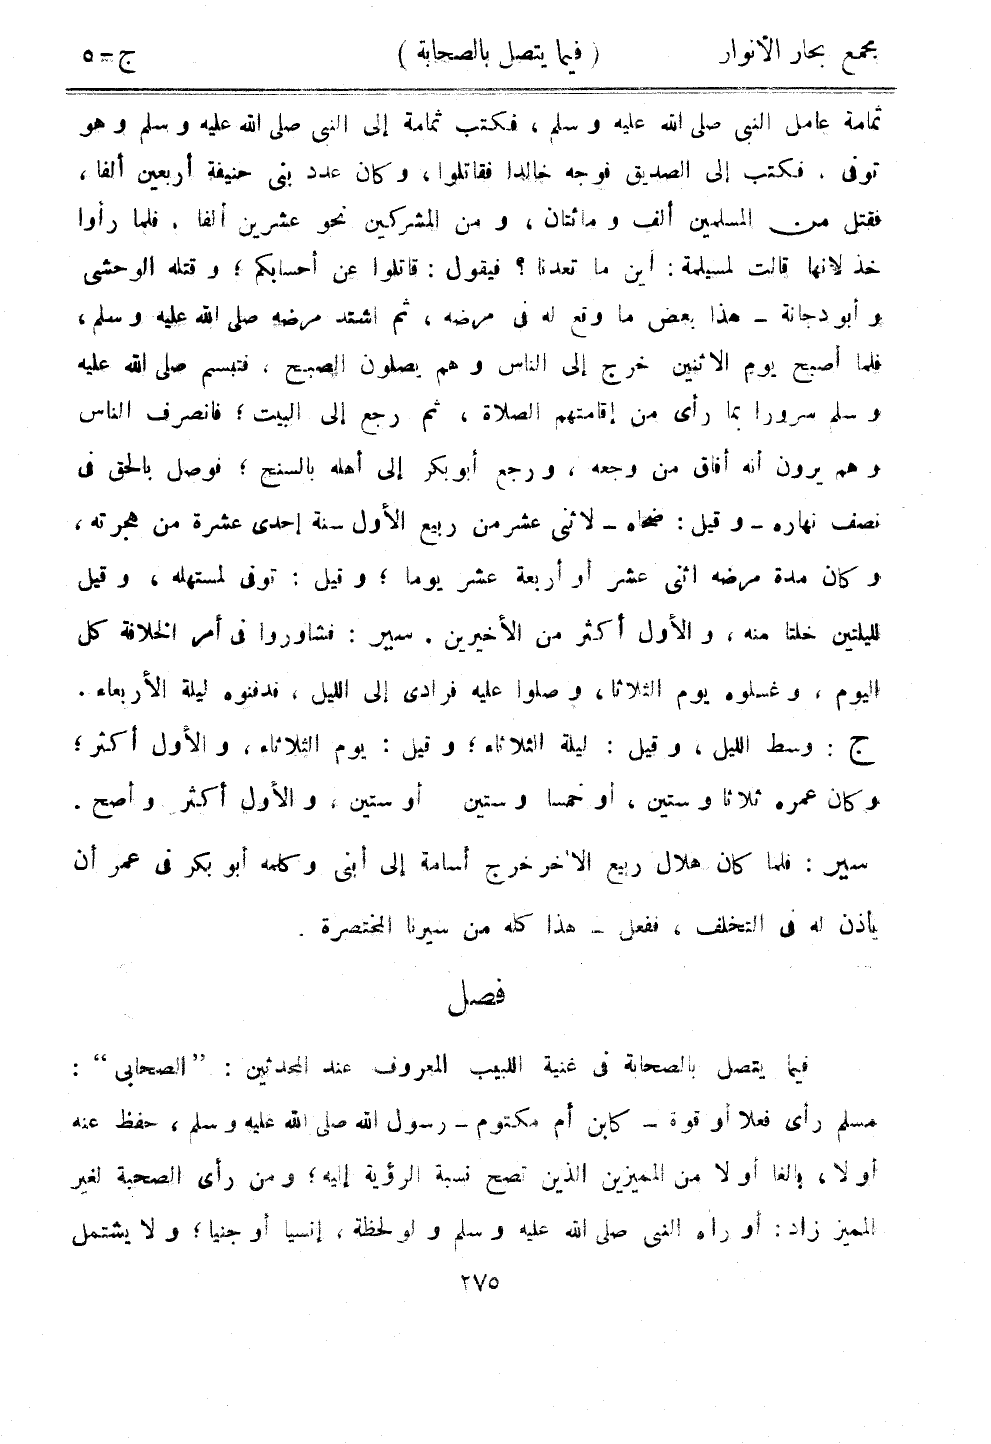 مجمع بحار الأنوار ( فيما يتصل بالصحابة ) ج - ٥
ثمامة عامل النبى صلى الله عليه و سلم ، فكتب ثمامة إلى النبى صلى الله عليه و سلم و هو
توفى . فكتب إلى الصديق فوجه خالدا فقاتلوا ، و كان عدد بنى حنيفة أربعين ألفا ،
فقتل من المسلمين ألف و مائتان ، و من المشركين نحو عشرين ألفا . فلما رأوا
خذلانها قالت لمسيلمة : أين ما تعدنا ؟ فيقول : قاتلوا عن أحسابكم ؛ و قتله الوحشى
و أبو دجانة - هذا بعض ما وقع له فى مرضه ، ثم اشتد مرضه صلى الله عليه و سلم ،
فلما أصبح يوم الاثنين خرج إلى الناس و هم يصلون الصبح ، فتبسم صلى الله عليه
و سلم سرورا بما رأى من إقامتهم الصلاة ، ثم رجع إلى البيت ؛ فانصرف الناس
و هم يرون أنه أفاق من وجعه ، و رجع أبو بكر إلى أهله بالسنح ؛ فوصل بالحق فى
نصف نهاره - و قيل : ضحاه - لاثنى عشر من ربيع الأول سنة إحدى عشرة من هجرته ،
و كان مدة مرضه اثنى عشر أو أربعة عشر يوما ؛ و قيل : توفى لمستهله ، و قيل
لليلتين خلتا منه ، و الأول أكثر من الأخيرين . سير : فشاوروا فى أمر الخلافة كل
اليوم ، و غسلوه يوم الثلاثا ، و صلوا عليه فرادى إلى الليل ، فدفنوه ليلة الأربعاء .
ج : وسط الليل ، و قيل : ليلة الثلاثاء ؛ و قيل : يوم الثلاثاء ، و الأول أكثر ؛
و كان عمره ثلاثا و ستين ، أو خمسا و ستين أو ستين ، و الأول أكثر و أصح .
سير : فلما كان هلال ربيع الآخر خرج أسامة إلى أبنى و كلمه أبو بكر فى عمر أن
يأذن له فى التخلف ، ففعل - هذا كله من سيرنا المختصرة .
فصل
فيما يتصل بالصحابة فى غنية اللبيب المعروف عند المحدثين : ” الصحابى “ :
مسلم رأى فعلا أو قوة - كابن أم مكتوم - رسول الله صلى الله عليه و سلم ، حفظ عنه
أو لا ، بالغا أو لا من المميزين الذين تصح نسبة الرؤية إليه ؛ و من رأى الصحبة لغير
المميز زاد : أو رآه النبى صلى الله عليه و سلم و لو لحظة ، إنسيا أو جنيا ؛ و لا يشتمل
٢٧٥